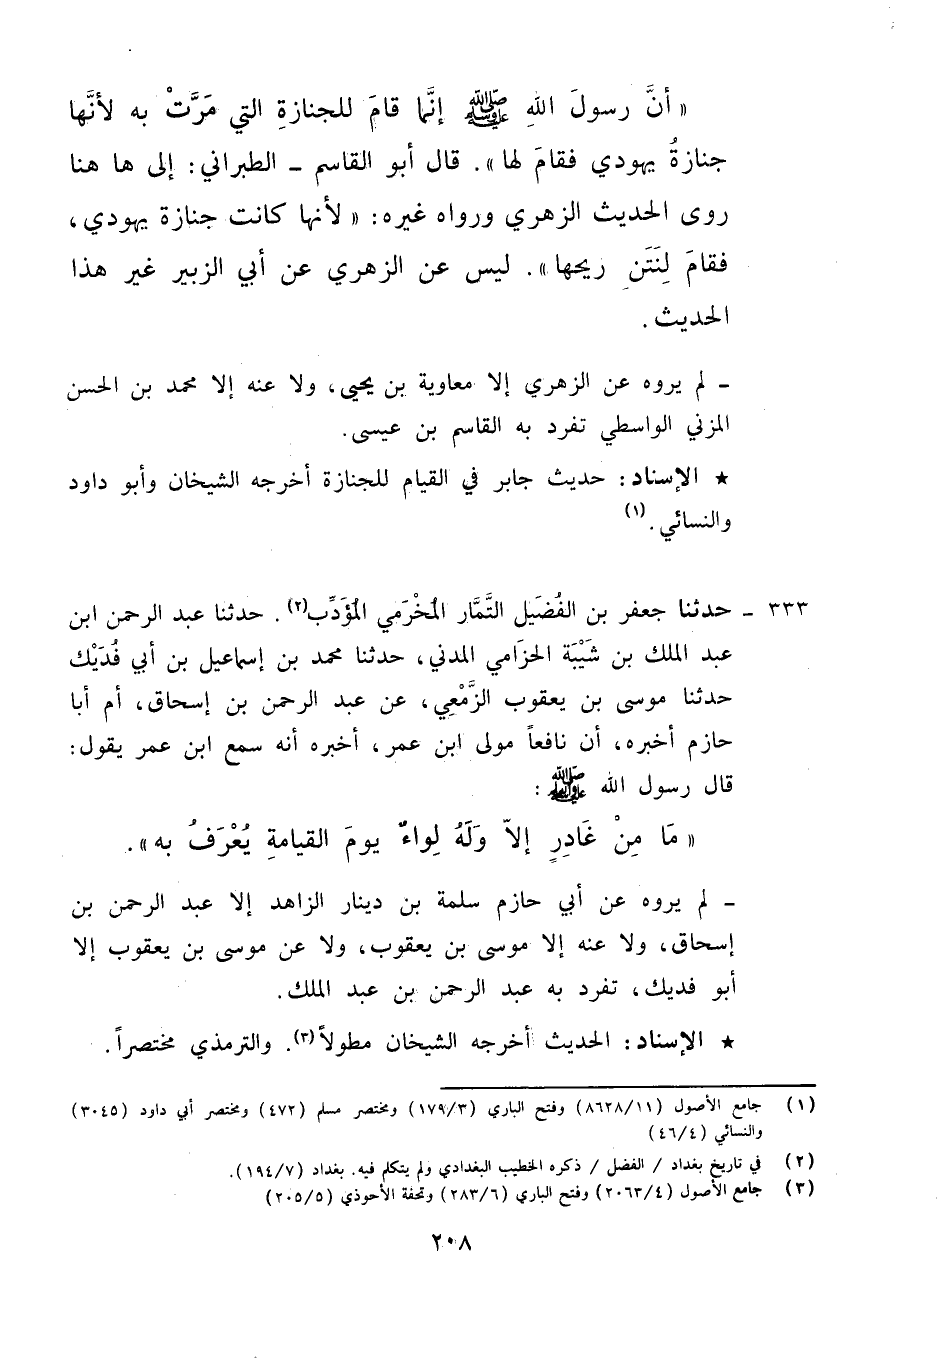 « أنَّ رسولَ اللهِ ﷺ إنَّما قامَ للجنازةِ التي مَرَّتْ به لأنَّها
جنازةُ يهودي فقامَ لها ». قال أبو القاسم ـ الطبراني: إلى ها هنا
روى الحديث الزهري ورواه غيره: « لأنها كانت جنازة يهودي،
فقامَ لِنَتَنِ ريحها ». ليس عن الزهري عن أبي الزبير غير هذا
الحديث.
ـ لم يروه عن الزهري إلا معاوية بن يحيى، ولا عنه إلا محمد بن الحسن
المزني الواسطي تفرد به القاسم بن عيسى.
★ الإسناد: حديث جابر في القيام للجنازة أخرجه الشيخان وأبو داود
والنسائي.(١)
٣٣٣ ـ حدثنا جعفر بن الفُضَيل التَّمَّار المُخْرَمي المُؤَدِّب(٢). حدثنا عبد الرحمن ابن
عبد الملك بن شَيْبَة الحزَامي المدني، حدثنا محمد بن إسماعيل بن أبي فُدَيْك
حدثنا موسى بن يعقوب الزَّمْعِي، عن عبد الرحمن بن إسحاق، أم أبا
حازم أخبره، أن نافعاً مولى ابن عمر، أخبره أنه سمع ابن عمر يقول:
قال رسول الله ﷺ :
« مَا مِنْ غَادِرٍ إلاّ وَلَهُ لِواءٌ يومَ القيامةِ يُعْرَفُ به ».
ـ لم يروه عن أبي حازم سلمة بن دينار الزاهد إلا عبد الرحمن بن
إسحاق، ولا عنه إلا موسى بن يعقوب، ولا عن موسى بن يعقوب إلا
أبو فديك، تفرد به عبد الرحمن بن عبد الملك.
★ الإسناد: الحديث أخرجه الشيخان مطولاً(٣). والترمذي مختصراً.
(١) جامع الأصول (٨٦٢٨/١١) وفتح الباري (١٧٩/٣) ومختصر مسلم (٤٧٢) ومختصر أبي داود (٣٠٤٥)
والنسائي (٤٦/٤)
(٢) في تاريخ بغداد / الفضل / ذكره الخطيب البغدادي ولم يتكلم فيه. بغداد (١٩٤/٧).
(٣) جامع الأصول (٢٠٦٣/٤) وفتح الباري (٢٨٣/٦) وتحفة الأحوذي (٢٠٥/٥)
٢٠٨